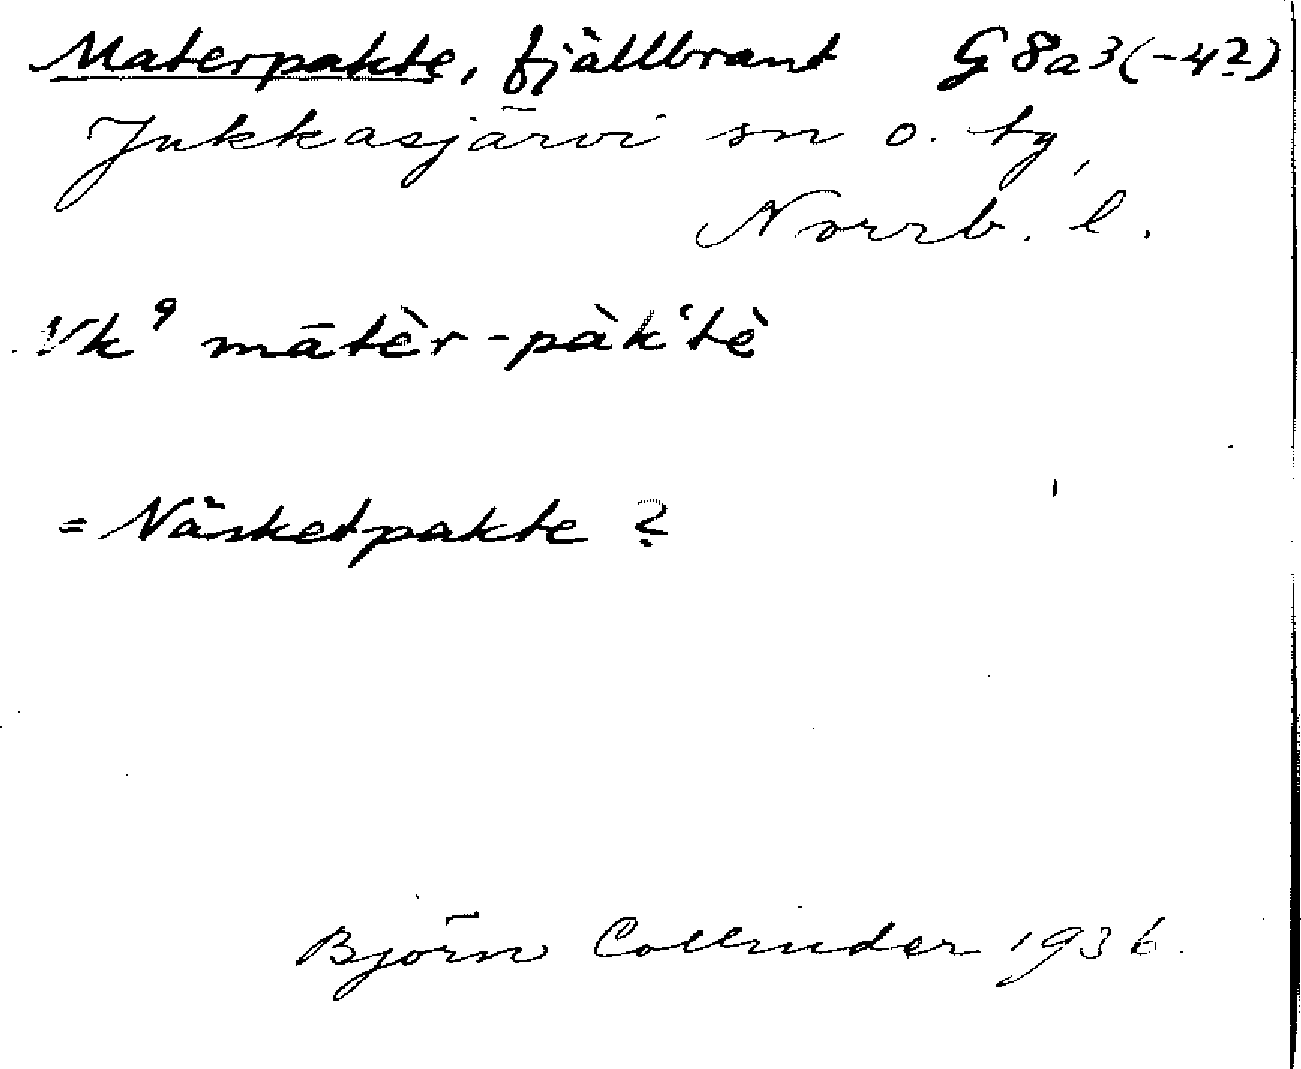 Materpakte, fjällbrant G 8a3(-4?)
Jukkasjärvi sn o. tg,
Norrb. l.
Vk⁹ mātèr-pàkʻtè
= Näsketpakte ?
Björn Collinder 1936.